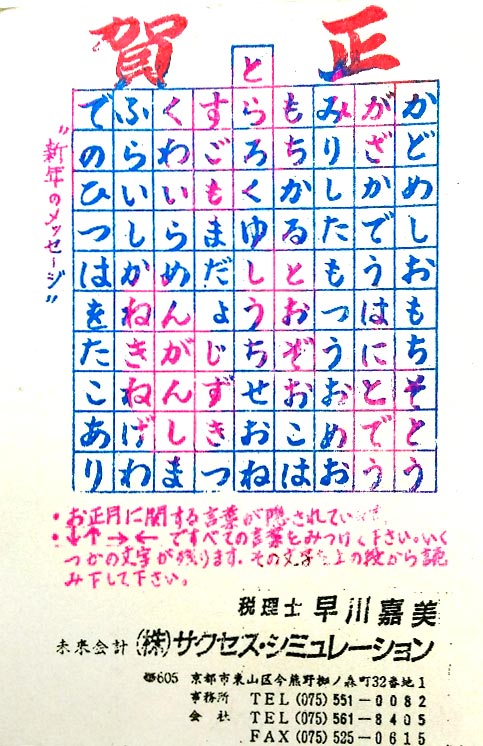 賀正
と
でふくすらもみがか
のらわごろちりざど
ひいいもくかしかめ
つしらまゆるたでし
はかめだしともうお
をねんょうおっはも
たきがじちぞうにち
こねんずせおおとそ
あげしきおこめでと
りわまつねはおうう
"新年のメッセージ"
・お正月に関する言葉が隠されています。
・↓↑→←ですべての言葉をみつけて下さい。いく
つかの文字が残ります。その文字を上の段から読
み下して下さい。
税理士 早川嘉美
未来会計 (株)サクセス・シミュレーション
〒605 京都市東山区今熊野椥ノ森町32番地1
事務所 TEL(075)551-0082
会社 TEL(075)561-8405
FAX(075)525-0615